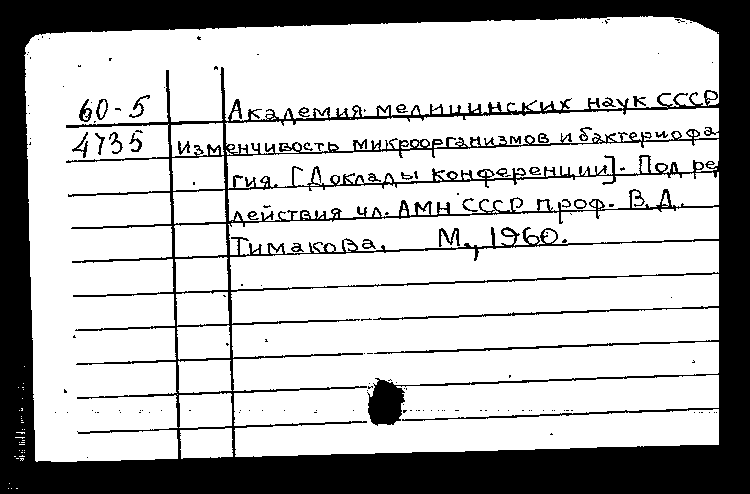 60-5 Академия медицинских наук СССР
4735 Изменчивость микроорганизмов и бактериофа-
гия. [Доклады конференции]. Под ре
действия чл. АМН СССР проф. В. Д.
Тимакова. М., 1960.